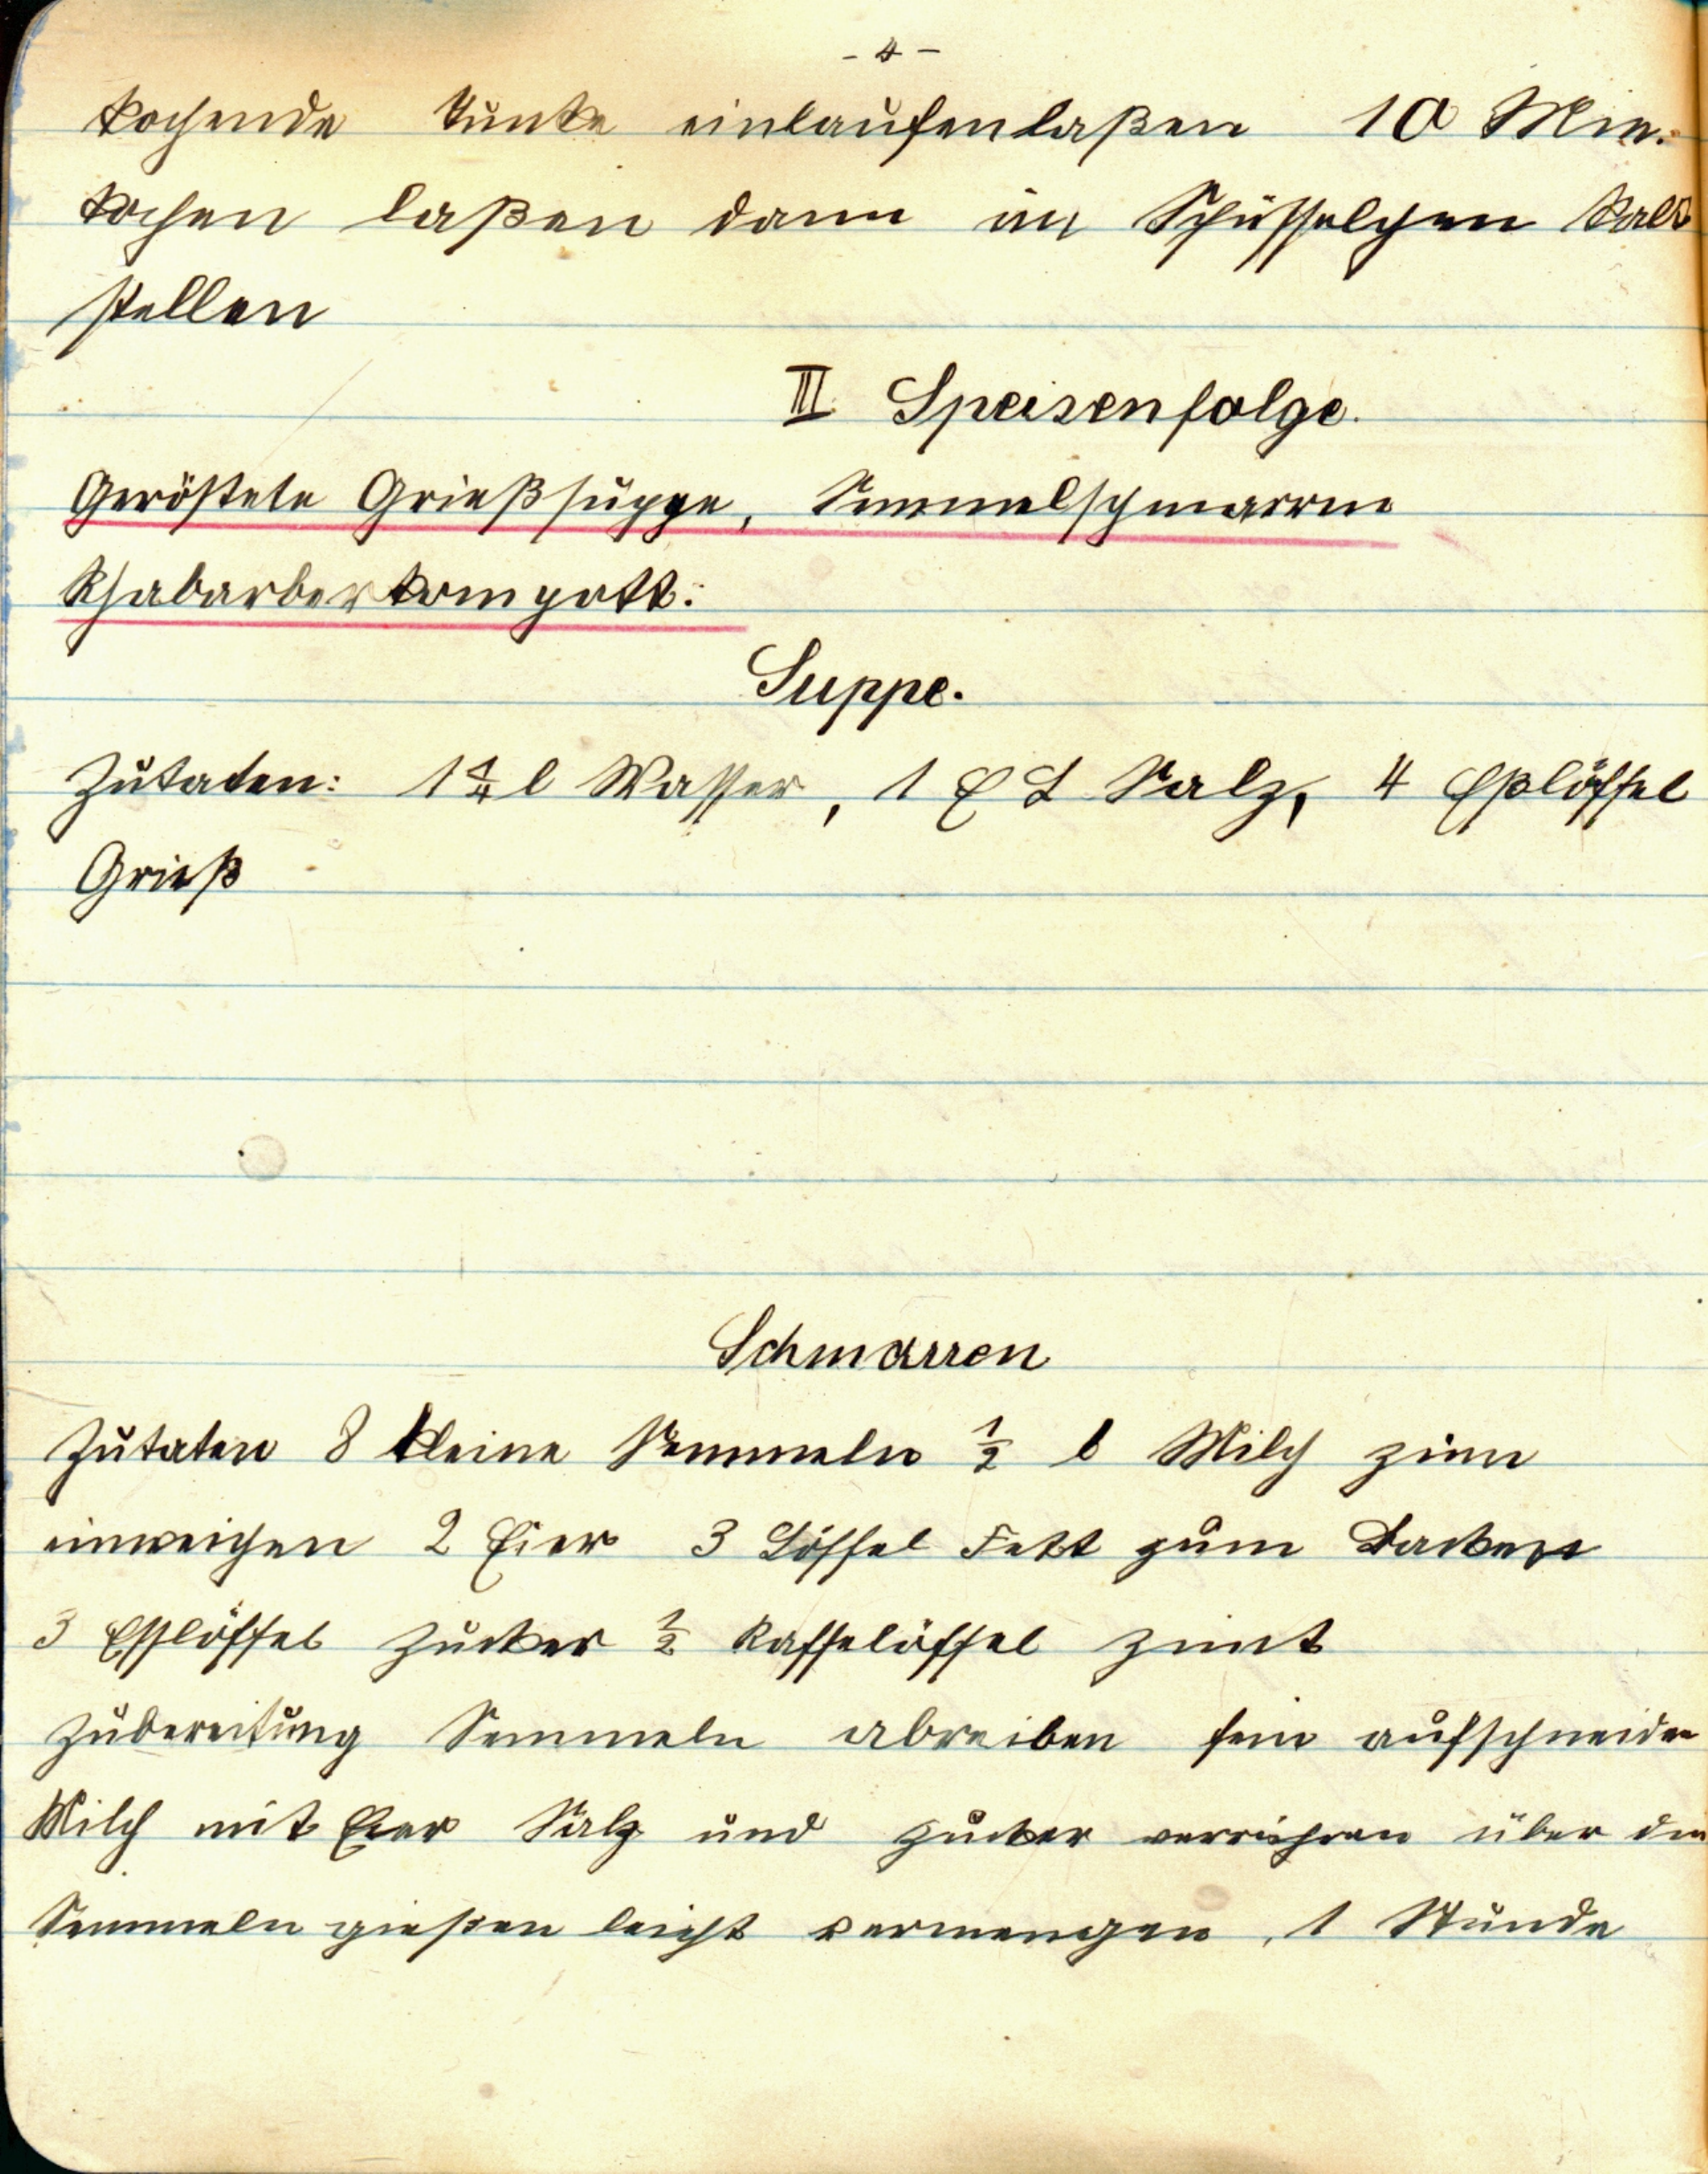 - 4 -
kochende Tunke einlaufenlaßen 10 Min.
kochen laßen dann in Schüsselchen kalt
stellen
III Speisenfolge.
Geröstete Grießsuppe, Semmelschmarrn
Rhabarberkompott.
Suppe.
Zutaten: 1 1/4 l Wasser, 1 E L Salz, 4 Eßlöffel
Grieß
Schmarren
Zutaten 8 kleine Semmeln 1/2 l Milch zum
einweichen 2 Eier 3 Löffel Fett zum Backen
3 Esslöffel Zucker 1/2 Kaffelöffel Zimt
Zubereitung Semmeln abreiben fein aufschneiden
Milch mit Eier Salz und Zucker verrühren über die
Semmeln gießen leicht vermengen, 1 Stunde